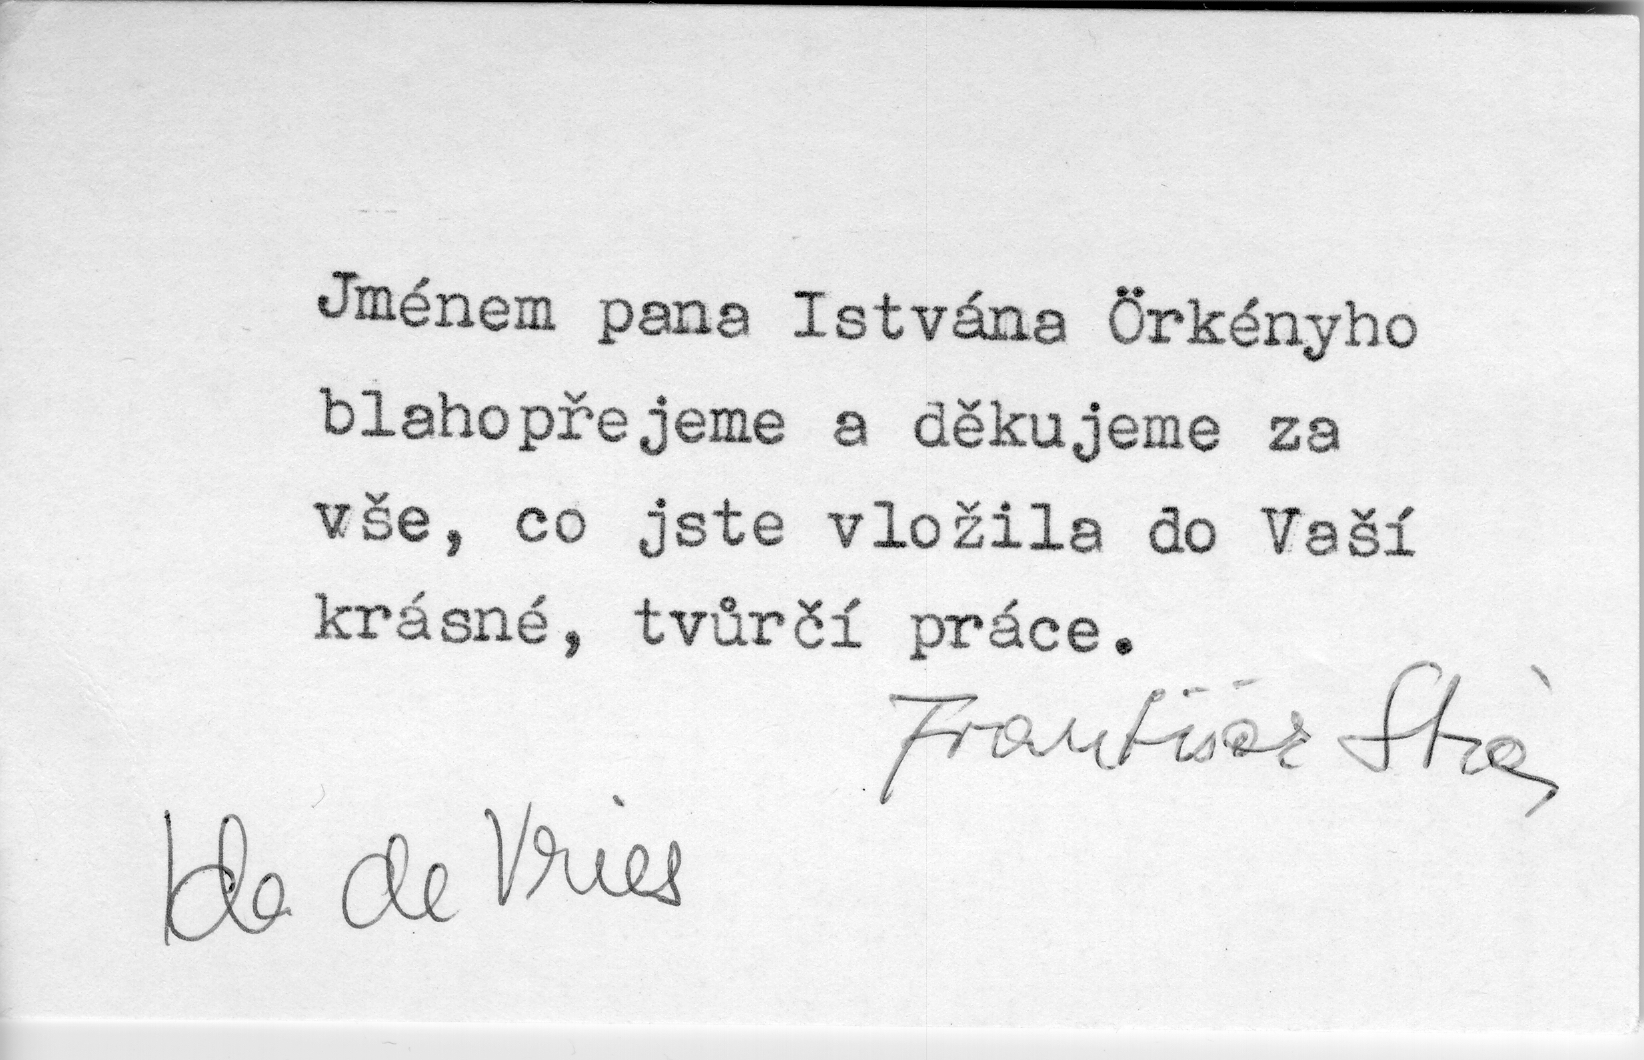 Jménem pana Istvána Örkényho
blahopřejeme a děkujeme za
vše, co jste vložila do Vaší
krásné, tvůrčí práce.
František
Ida de Vries